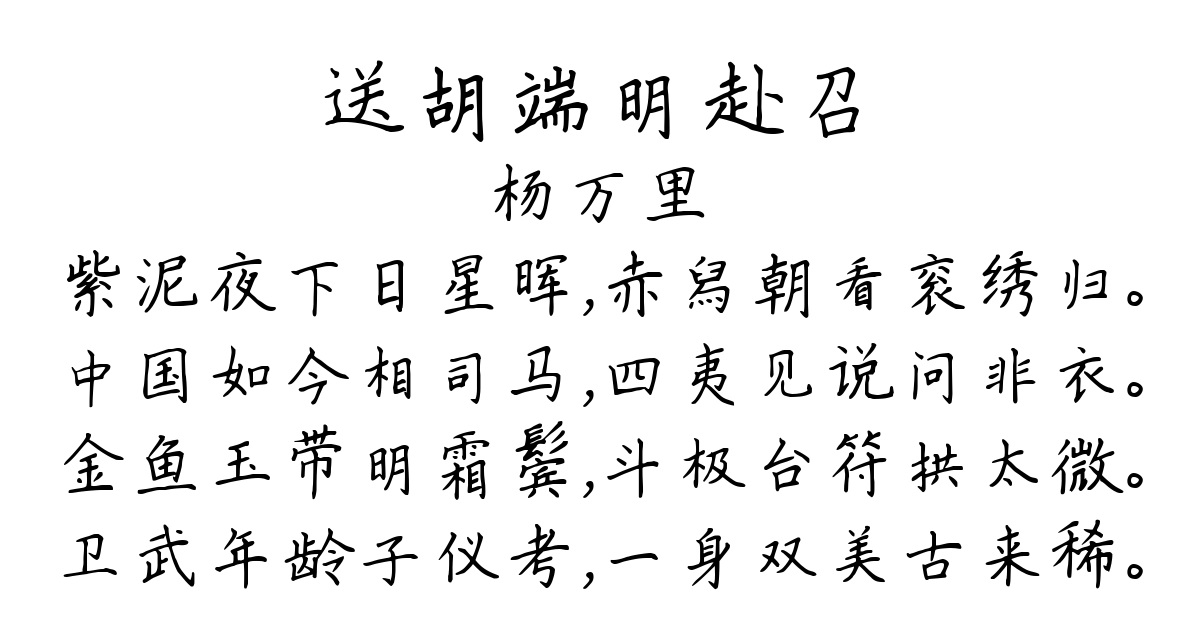 送胡端明赴召
杨万里
紫泥夜下日星晖,赤舄朝看衮绣归。
中国如今相司马,四夷见说问非衣。
金鱼玉带明霜鬓,斗极台符拱太微。
卫武年龄子仪考,一身双美古来稀。